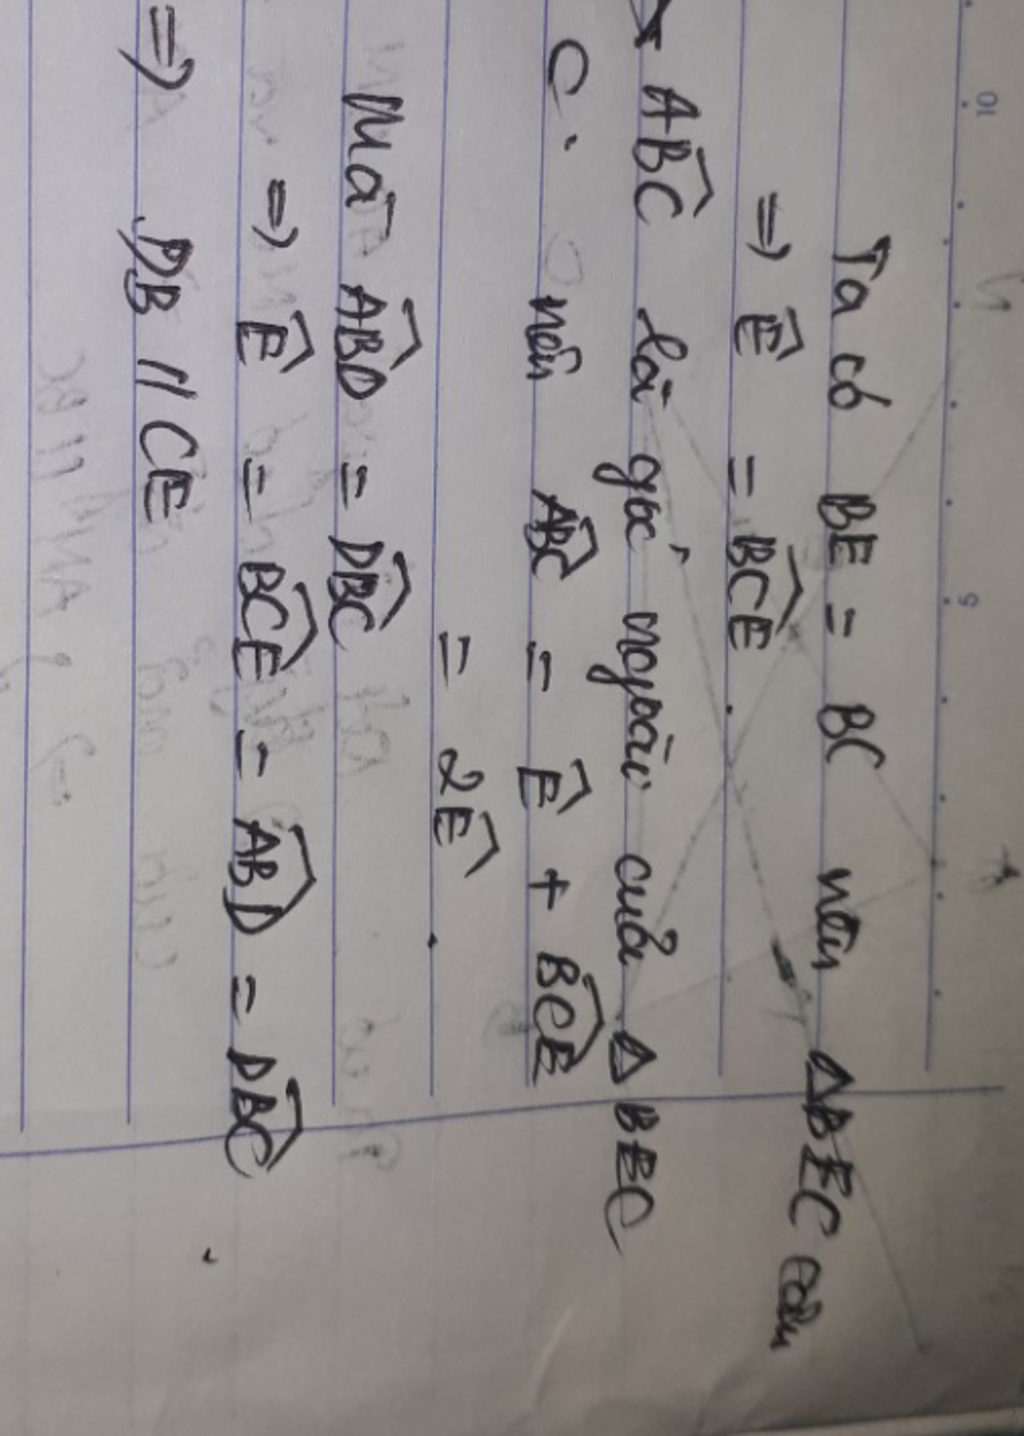 Ta có BE = BC nên ΔBEC cân
=> Ê = BĈE.
* ABĈ là góc ngoài của Δ BEC
C. nên ABC = Ê + BCE
= 2Ê.
Mà ABD = DBC
=> Ê = BCE = ABD = DBC
=> DB // CE
10
5